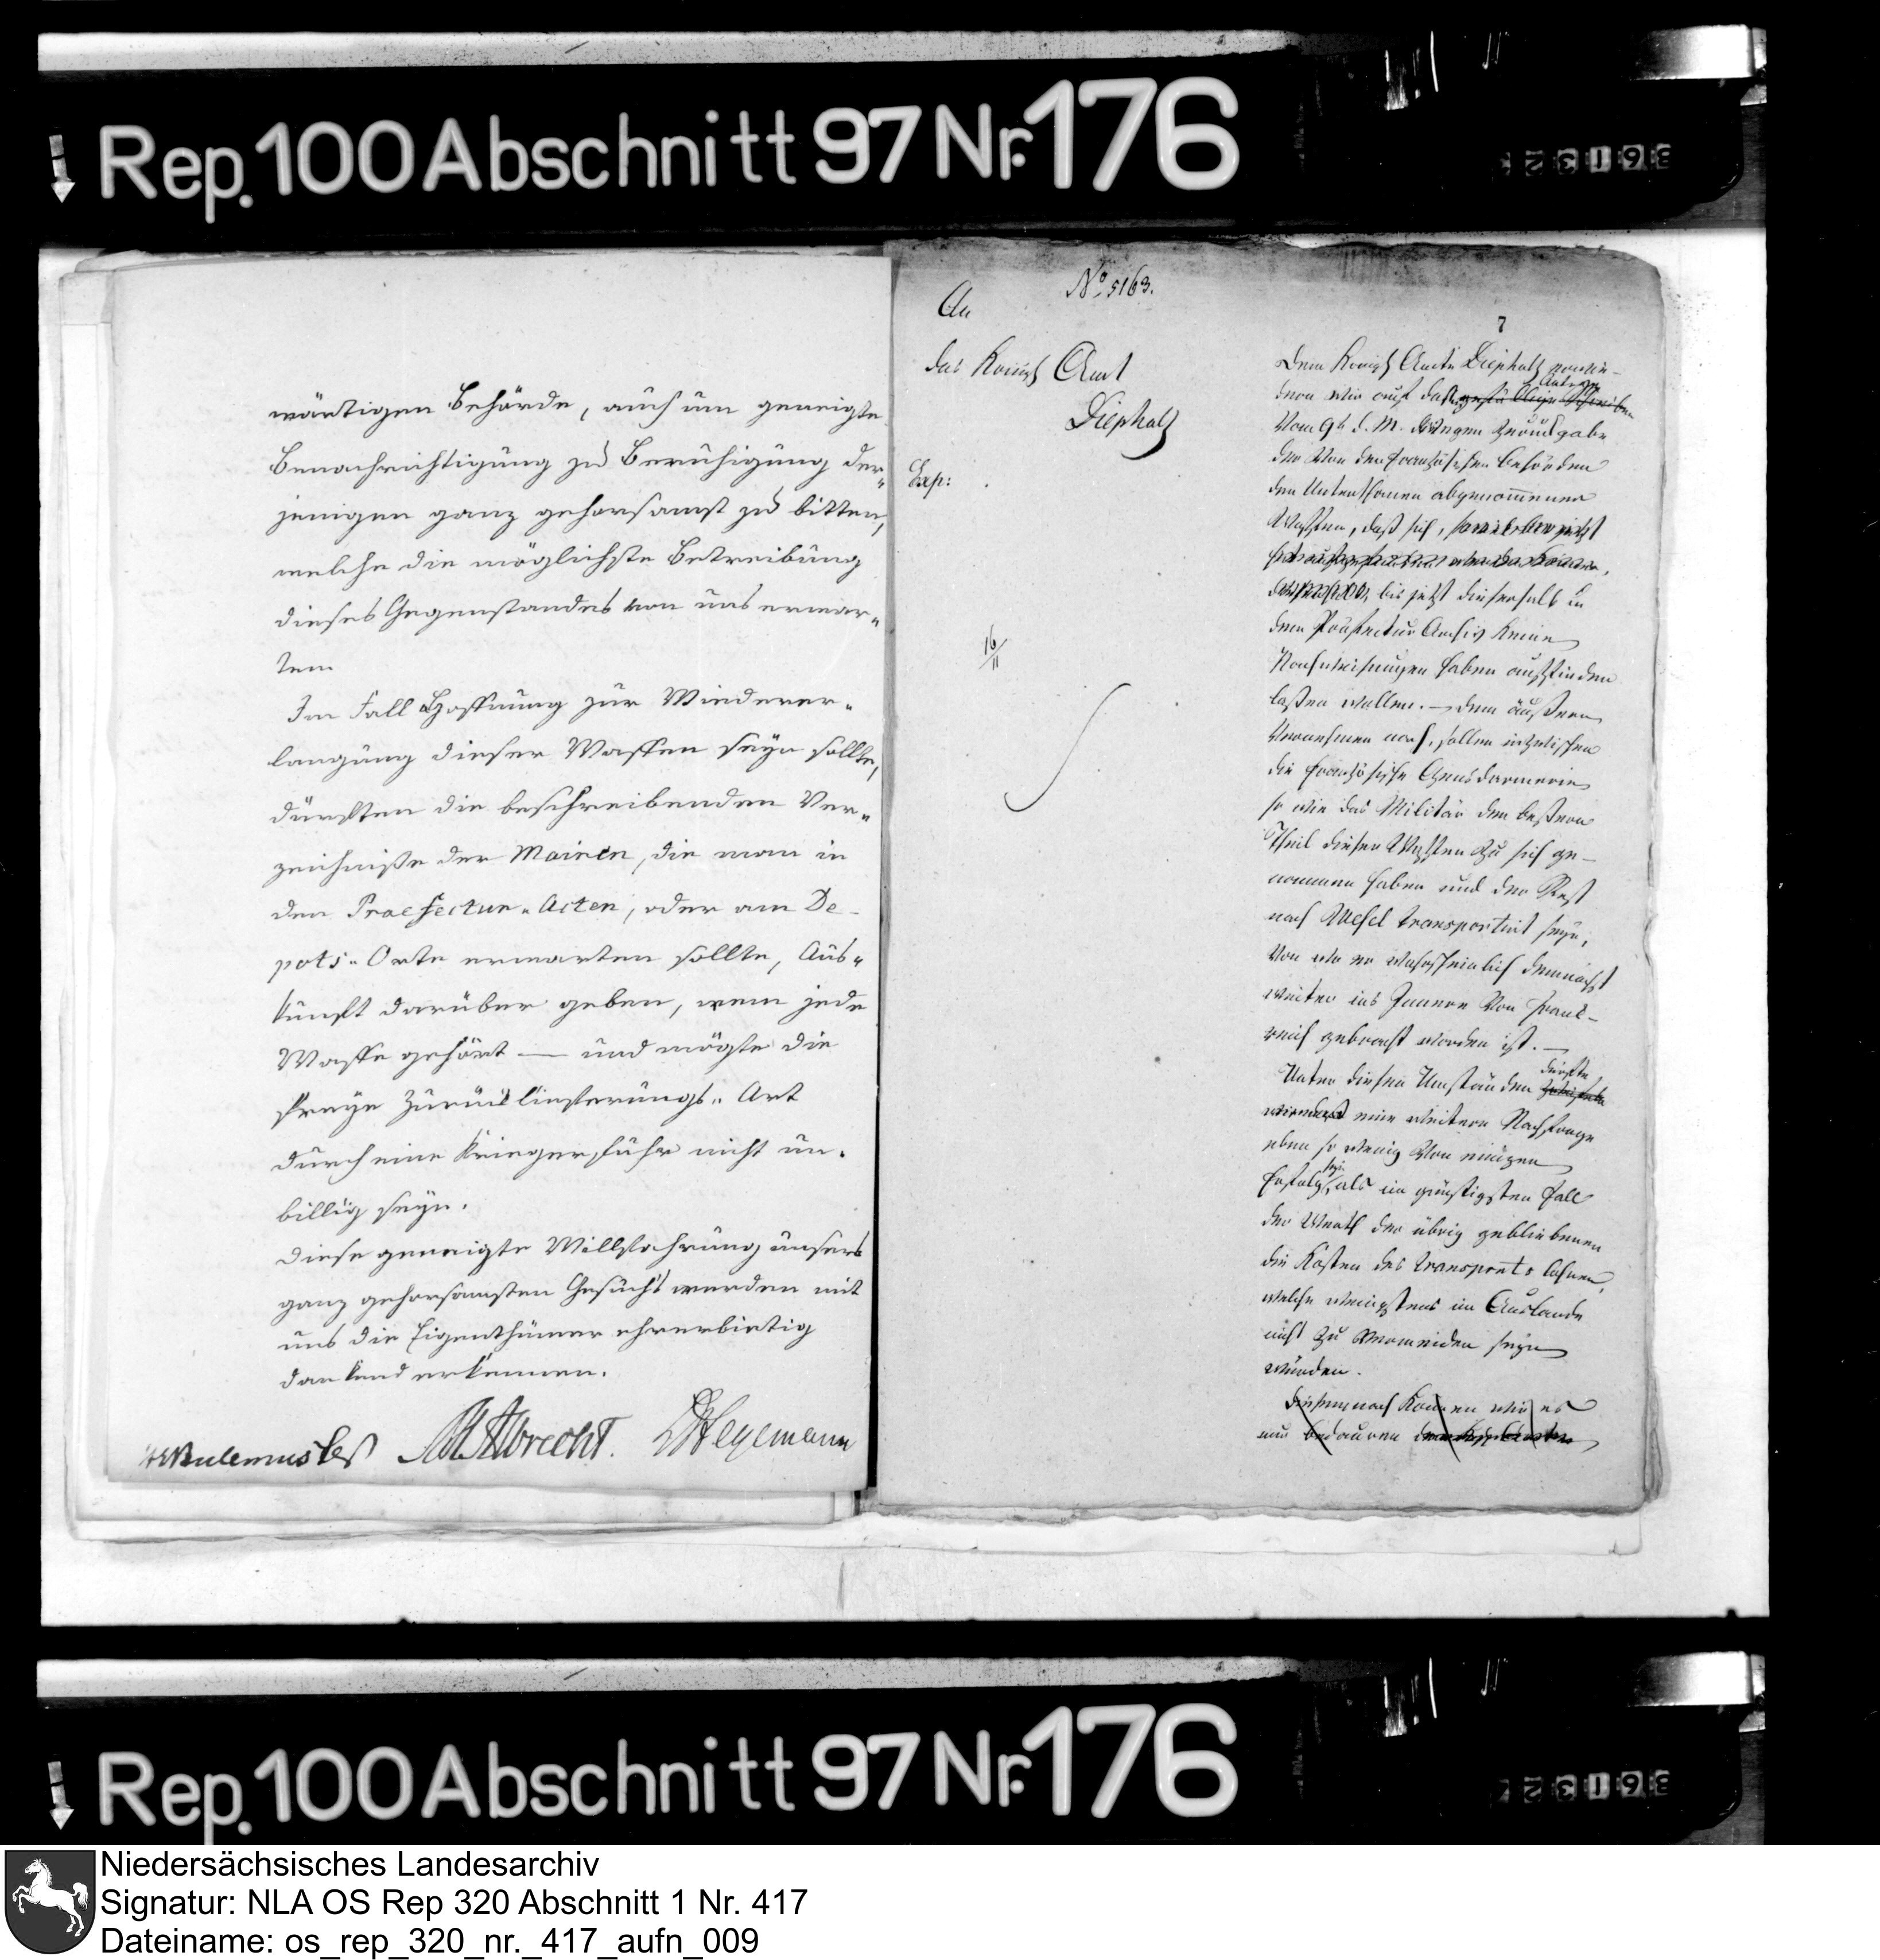 Rep. 100 Abschnitt 97 Nr. 176
wärtigen Behörde, auch um geneigte
Benachrichtigung zu Beruhigung der„
jenigen ganz gehorsamst zu bitten,
welche die möglichste Betreibung
dieses Gegenstandes von uns erwar„
ten.
Im Fall Hoffnung zur Wiederer„
langung dieser Waffen seyn sollte,
dürften die beschreibenden Ver„
zeichniße der Mairien, die man in
den Praefectur„Acten, oder am De-
pots„Orte erwarten sollte, Aus„
kunft darüber geben, wem jede
Waffe gehört — und mögte die
freye Zurücklieferungs„Art
durch eine Kriegerfuhr nicht un„
billig seyn.
Diese geneigte Willfahrung unsers
ganz gehorsamsten Gesuchs werden mit
uns die Eigenthümer ehrerbietig
dankend erkennen.
Albrecht. Hegemann
No. 5163.
7
An
das Königl Amt
Diepholz
Exp:
16/11
Dem Königl Amte Diepholz erwie-
dern wir auf das Antrag
vom 9t d. M. wegen Zurückgabe
der von den französischen Behörden
den Unterthanen abgenommenen
Waffen, daß sich,
bis jetzt dieserhalb in
dem Präfectur Archiv keine
Nachweisungen haben auffinden
laßen wollen. — Dem äußern
Vernehmen nach, sollen inzwischen
die französische Gensdarmerie
so wie das Militär den beßern
Theil dieser Waffen zu sich ge-
nommen haben und der Rest
nach Wesel transportirt seyn,
von wo er wahrscheinlich demnächst
weiter ins Innere von Frank-
reich gebracht worden ist. —
Unter diesen Umständen dürfte
eine weitere Nachfrage
eben so wenig von einigen
Erfolg seyn, als im günstigsten Fall
der Werth der übrig gebliebenen
die Kosten des Transports lohnen,
welche wenigstens im Auslande
nicht zu vermeiden seyn
würden.
Diesemnach können wir es
nur bedauren
Rep. 100 Abschnitt 97 Nr. 176
Niedersächsisches Landesarchiv
Signatur: NLA OS Rep 320 Abschnitt 1 Nr. 417
Dateiname: os_rep_320_nr._417_aufn_009